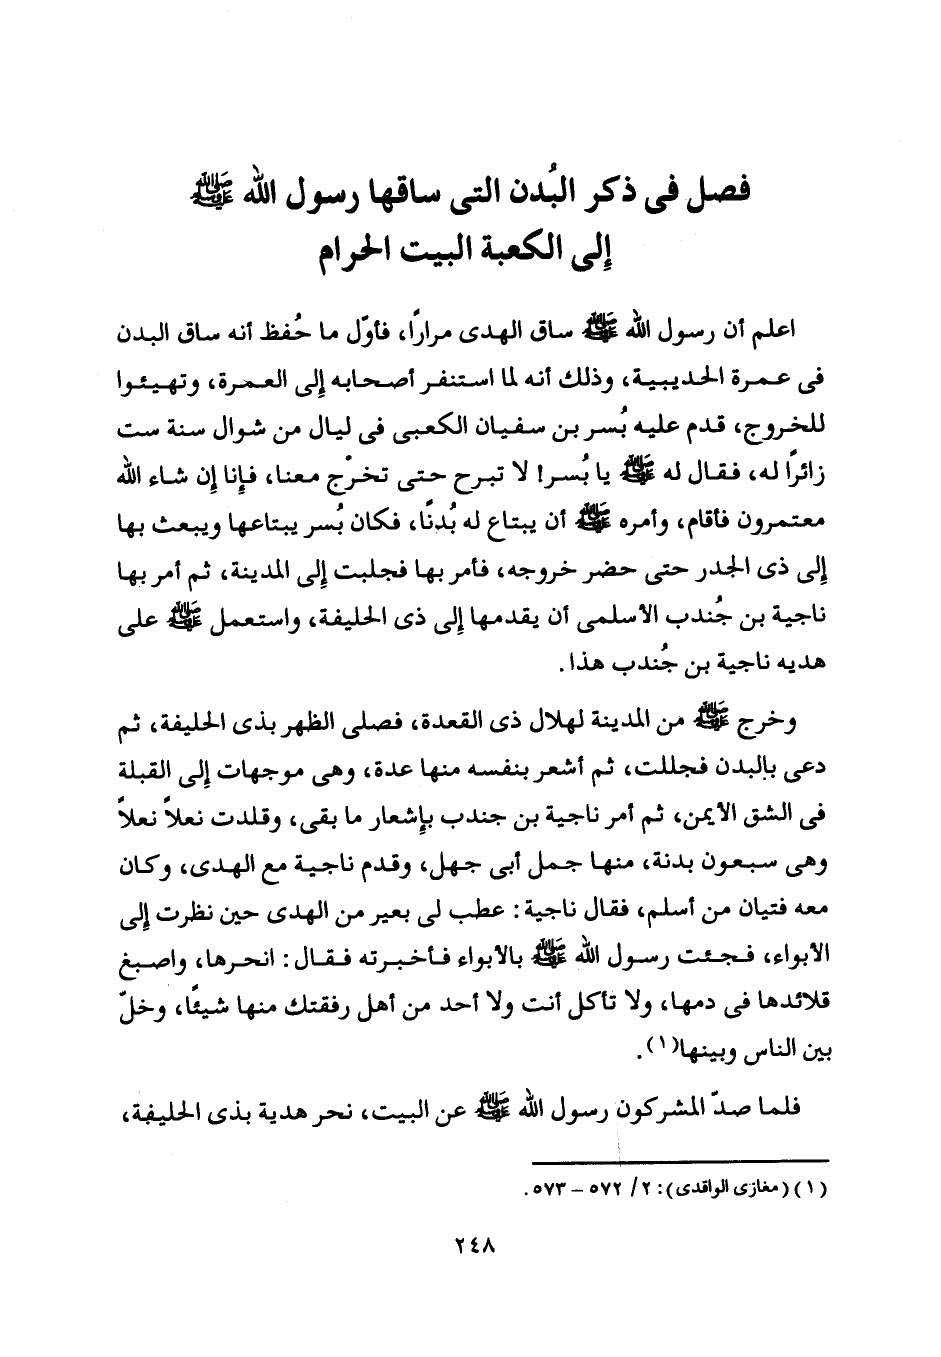 فصل فى ذكر البُدن التى ساقها رسول الله ﷺ
إلى الكعبة البيت الحرام
اعلم أن رسول الله ﷺ ساق الهدى مرارًا، فأوّل ما حُفظ أنه ساق البدن
فى عمرة الحديبية، وذلك أنه لما استنفر أصحابه إلى العمرة، وتهيئوا
للخروج، قدم عليه بُسر بن سفيان الكعبى فى ليال من شوال سنة ست
زائرًا له، فقال له ﷺ يا بُسر! لا تبرح حتى تخرْج معنا، فإنا إن شاء الله
معتمرون فأقام، وأمره ﷺ أن يبتاع له بُدنًا، فكان بُسر يبتاعها ويبعث بها
إلى ذى الجدر حتى حضر خروجه، فأمر بها فجلبت إلى المدينة، ثم أمر بها
ناجية بن جُندب الأسلمى أن يقدمها إلى ذى الحليفة، واستعمل ﷺ على
هديه ناجية بن جُندب هذا.
وخرج ﷺ من المدينة لهلال ذى القعدة، فصلى الظهر بذى الحليفة، ثم
دعى بالبدن فجللت، ثم أشعر بنفسه منها عدة، وهى موجهات إلى القبلة
فى الشق الأيمن، ثم أمر ناجية بن جندب بإشعار ما بقى، وقلدت نعلاً نعلاً
وهى سبعون بدنة، منها جمل أبى جهل، وقدم ناجية مع الهدى، وكان
معه فتيان من أسلم، فقال ناجية: عطب لى بعير من الهدى حين نظرت إلى
الأبواء، فجئت رسول الله ﷺ بالأبواء فأخبرته فقال: انحرها، واصبغ
قلائدها فى دمها، ولا تأكل أنت ولا أحد من أهل رفقتك منها شيئًا، وخلّ
بين الناس وبينها(١).
فلما صدّ المشركون رسول الله ﷺ عن البيت، نحر هدية بذى الحليفة،
(١) (مغازى الواقدى): ٢/ ٥٧٢ – ٥٧٣.
٢٤٨